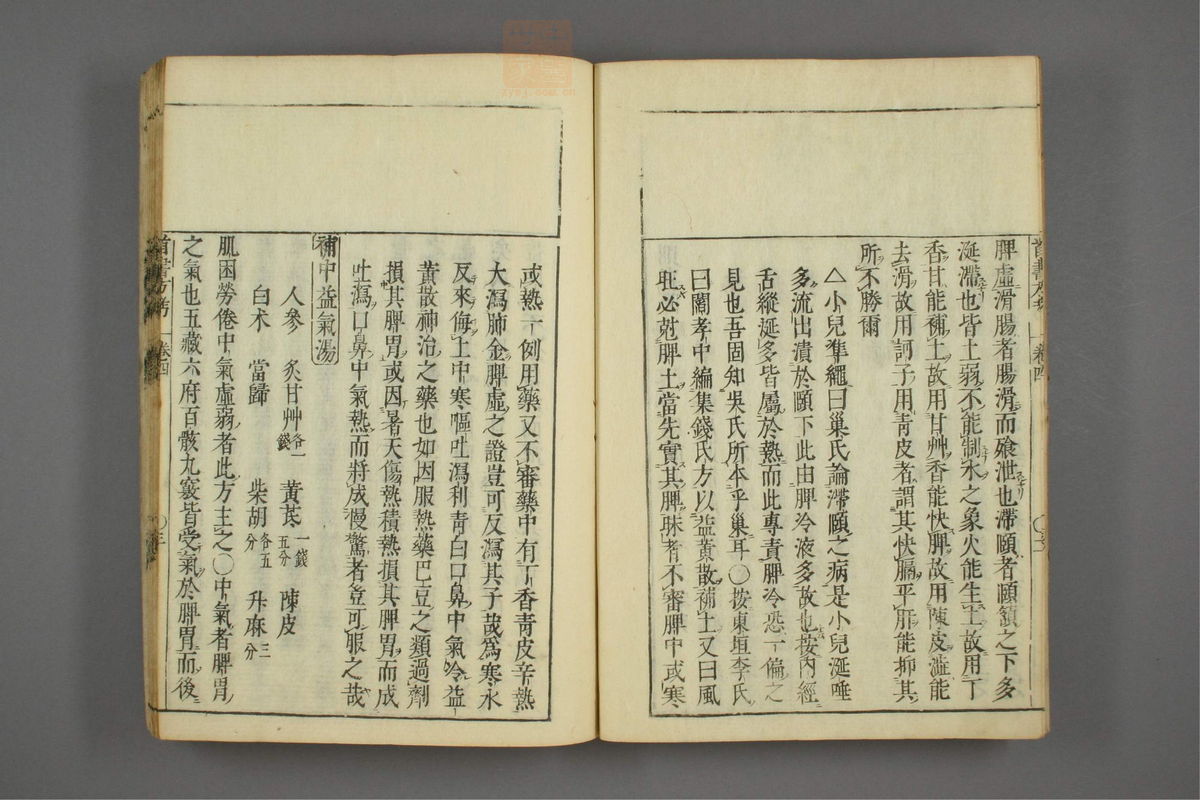 脾虛滑腸者腸滑而飱泄也滯頤者頤頷之下多
涎滯也皆土弱不能制水之象火能生土故用丁
香甘能補土故用甘艸香能快脾故用陳皮澁能
去滑故用訶子用青皮者謂其快膈平肝能抑其
所不勝爾
△小兒準繩曰巢氏論滯頤之病是小兒涎唾
多流出漬於頤下此由脾冷液多故也按內經
舌縱涎多皆屬於熱而此專責脾冷恐一偏之
見也吾固知吳氏所本乎巢耳○按東垣李氏
曰閻孝中編集錢氏方以益黃散補土又曰風
旺必尅脾土當先實其脾昧者不審脾中或寒
或熱一例用藥又不審藥中有丁香青皮辛熱
大瀉肺金脾虛之證豈可反瀉其子哉爲寒水
反來侮土中寒嘔吐瀉利青白口鼻中氣冷益
黃散神治之藥也如因服熱藥巴豆之類過劑
損其脾胃或因暑天傷熱積熱損其脾胃而成
吐瀉口鼻中氣熱而將成慢驚者豈可服之哉
補中益氣湯
人參 炙甘艸各一錢 黃芪一錢五分 陳皮
白术 當歸 柴胡各五分 升麻三分
肌困勞倦中氣虛弱者此方主之○中氣者脾胃
之氣也五藏六府百骸九竅皆受氣於脾胃而後
首書方考 卷四